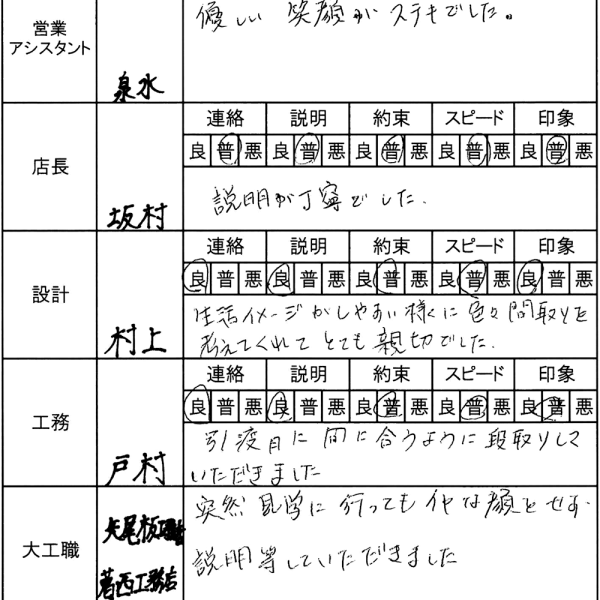 優しい 笑顔が ステキでした。
営業
アシスタント
泉水
連絡 説明 約束 スピード 印象
良 普 悪 良 普 悪 良 普 悪 良 普 悪 良 普 悪
店長
坂村
説明が丁寧でした.
連絡 説明 約束 スピード 印象
良 普 悪 良 普 悪 良 普 悪 良 普 悪 良 普 悪
設計
村上
生活イメージがしやすい様に色々間取りを
考えてくれて とても 親切でした.
連絡 説明 約束 スピード 印象
良 普 悪 良 普 悪 良 普 悪 良 普 悪 良 普 悪
工務
戸村
引渡日に 間に合うように段取りして
いただきました
大工職
矢尾板
葛西工務店
突然 見学に 行っても イヤな顔とせず
説明等していただきました